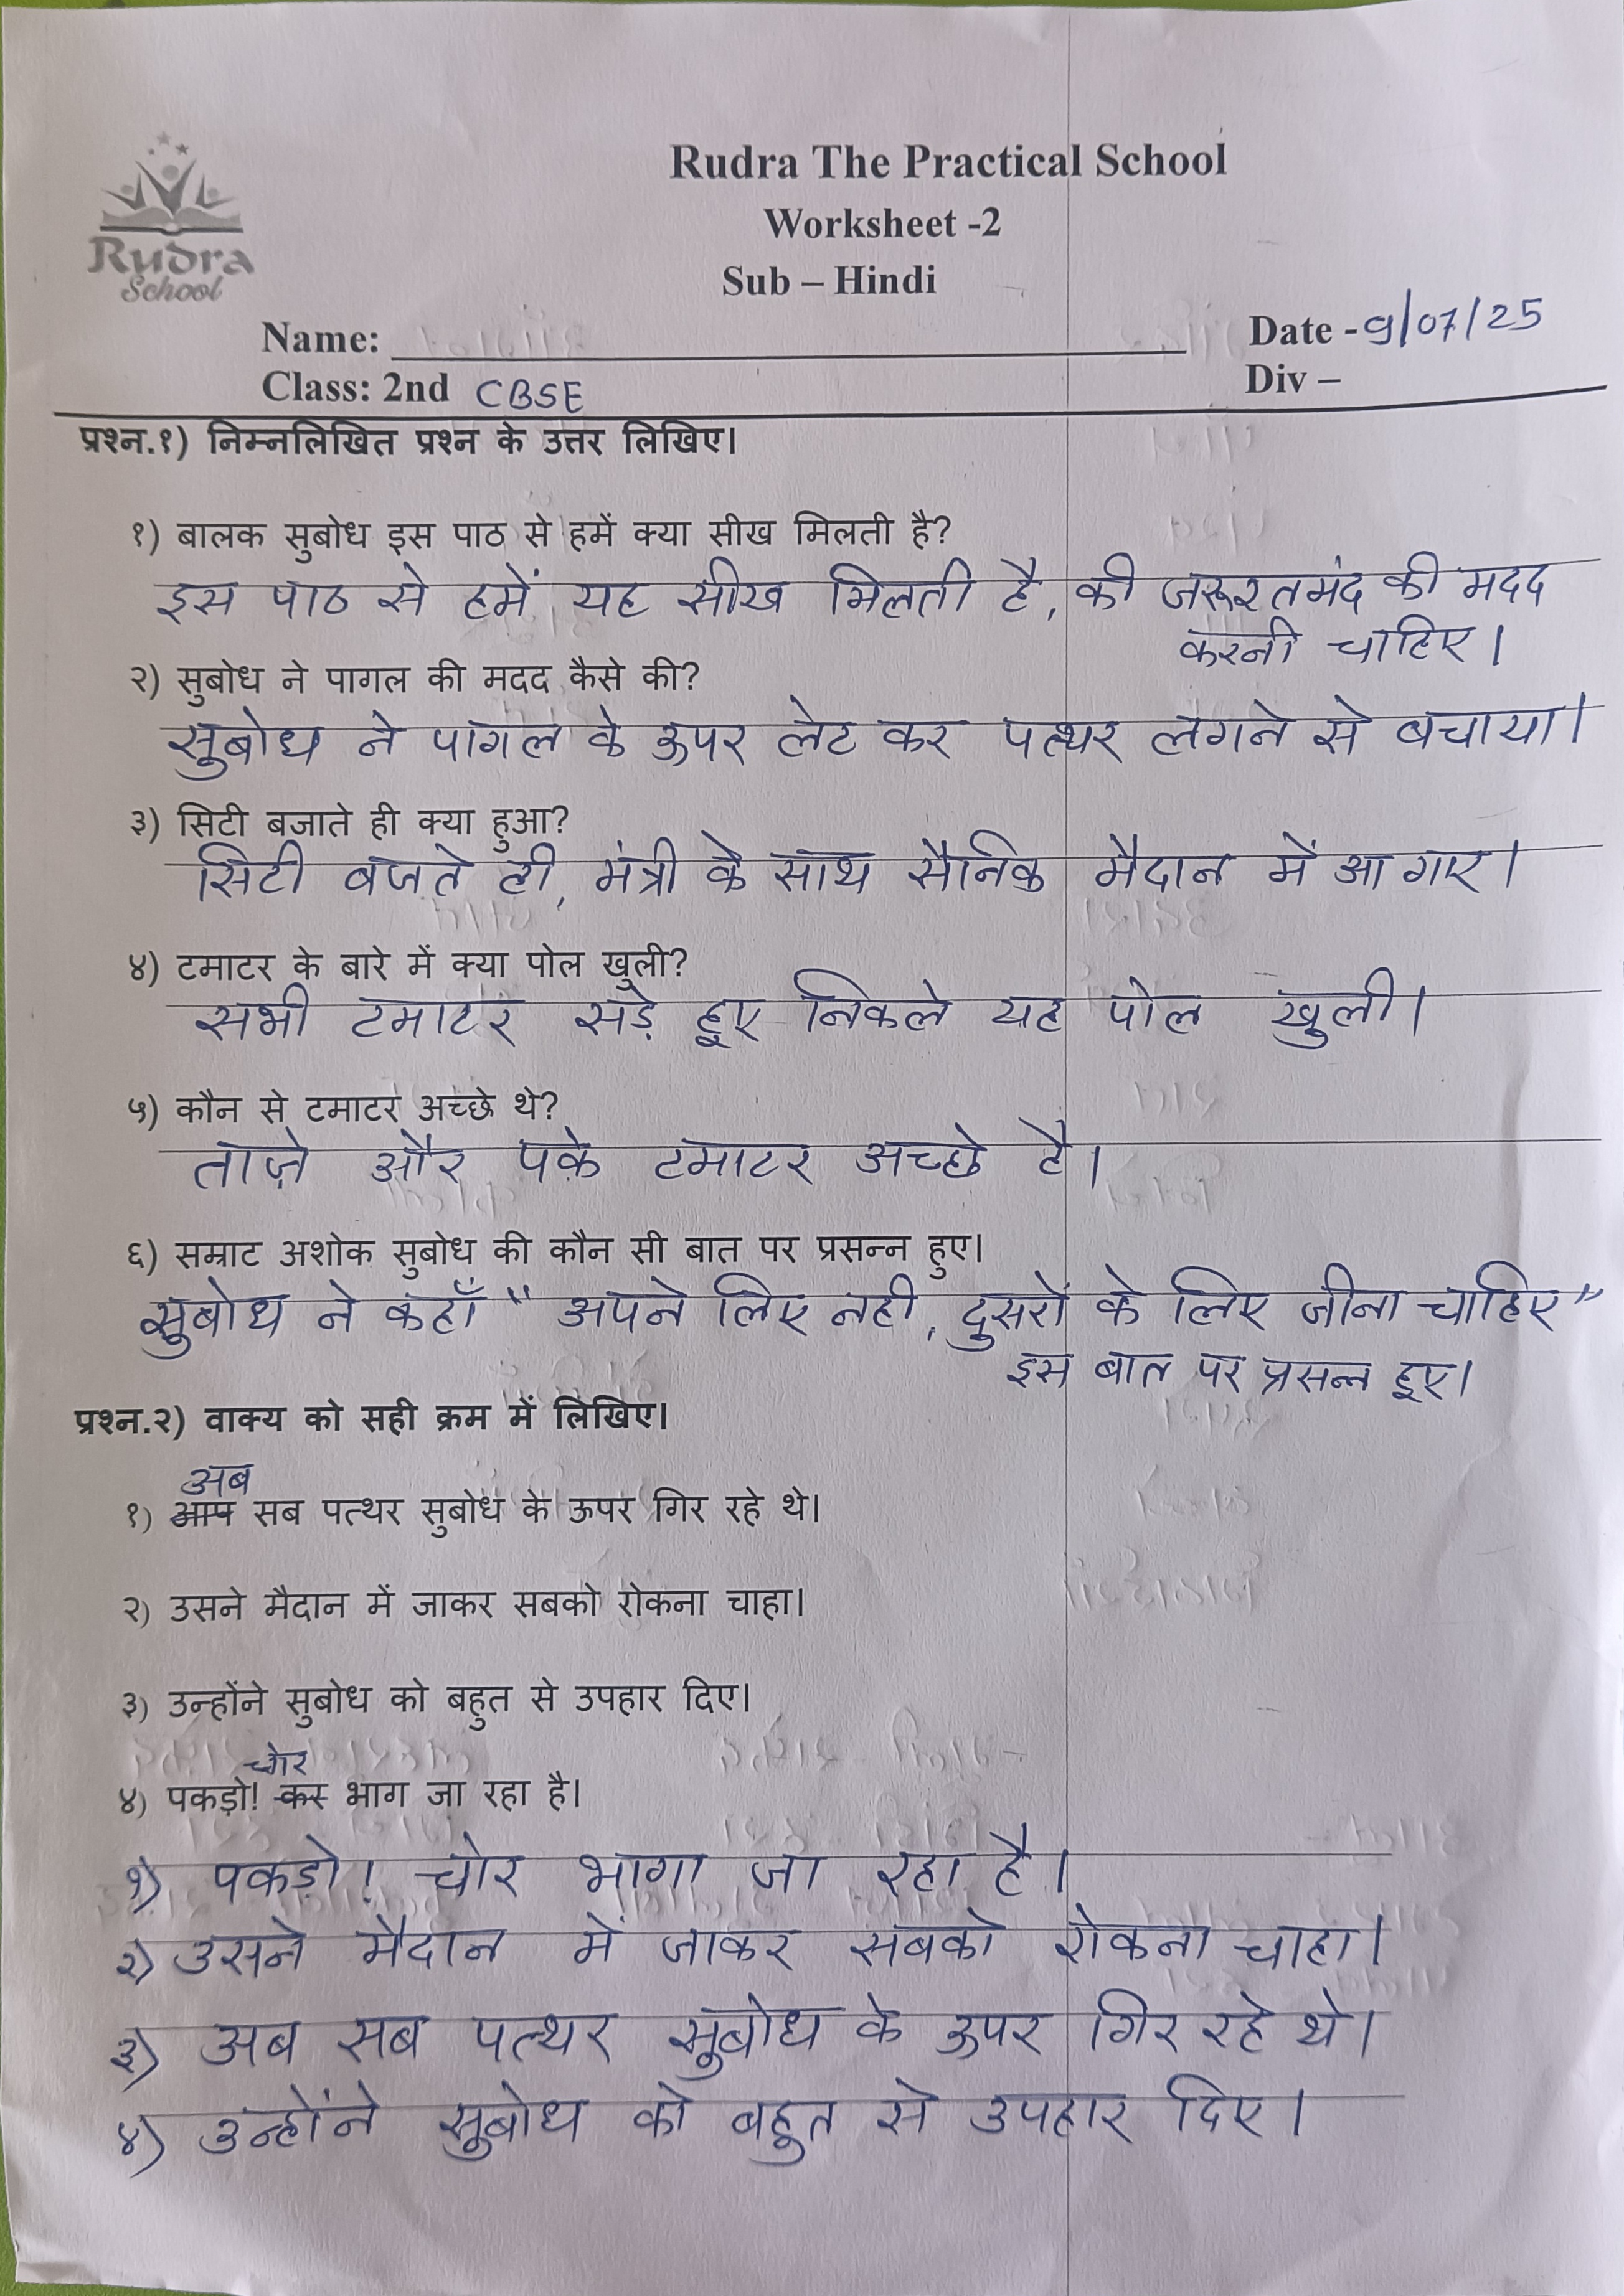 Rudra The Practical School
Worksheet -2
Sub – Hindi
Rudra
School
Name: Date - 9/07/25
Class: 2nd CBSE Div –
प्रश्न.१) निम्नलिखित प्रश्न के उत्तर लिखिए।
१) बालक सुबोध इस पाठ से हमें क्या सीख मिलती है?
इस पाठ से हमें यह सीख मिलती है, की जरूरतमंद की मदद
करनी चाहिए।
२) सुबोध ने पागल की मदद कैसे की?
सुबोध ने पागल के ऊपर लेट कर पत्थर लगने से बचाया।
३) सिटी बजाते ही क्या हुआ?
सिटी बजते ही, मंत्री के साथ सैनिक मैदान में आ गए।
४) टमाटर के बारे में क्या पोल खुली?
सभी टमाटर सड़े हुए निकले यह पोल खुली।
५) कौन से टमाटर अच्छे थे?
ताज़े और पके टमाटर अच्छे है।
६) सम्राट अशोक सुबोध की कौन सी बात पर प्रसन्न हुए।
सुबोध ने कहाँ " अपने लिए नही, दुसरों के लिए जीना चाहिए"
इस बात पर प्रसन्न हुए।
प्रश्न.२) वाक्य को सही क्रम में लिखिए।
अब
१) आप सब पत्थर सुबोध के ऊपर गिर रहे थे।
२) उसने मैदान में जाकर सबको रोकना चाहा।
३) उन्होंने सुबोध को बहुत से उपहार दिए।
चोर
४) पकड़ो! कर भाग जा रहा है।
१) पकड़ो! चोर भागा जा रहा है।
२) उसने मैदान में जाकर सबको रोकना चाहा।
३) अब सब पत्थर सुबोध के ऊपर गिर रहे थे।
४) उन्होंने सुबोध को बहुत से उपहार दिए।